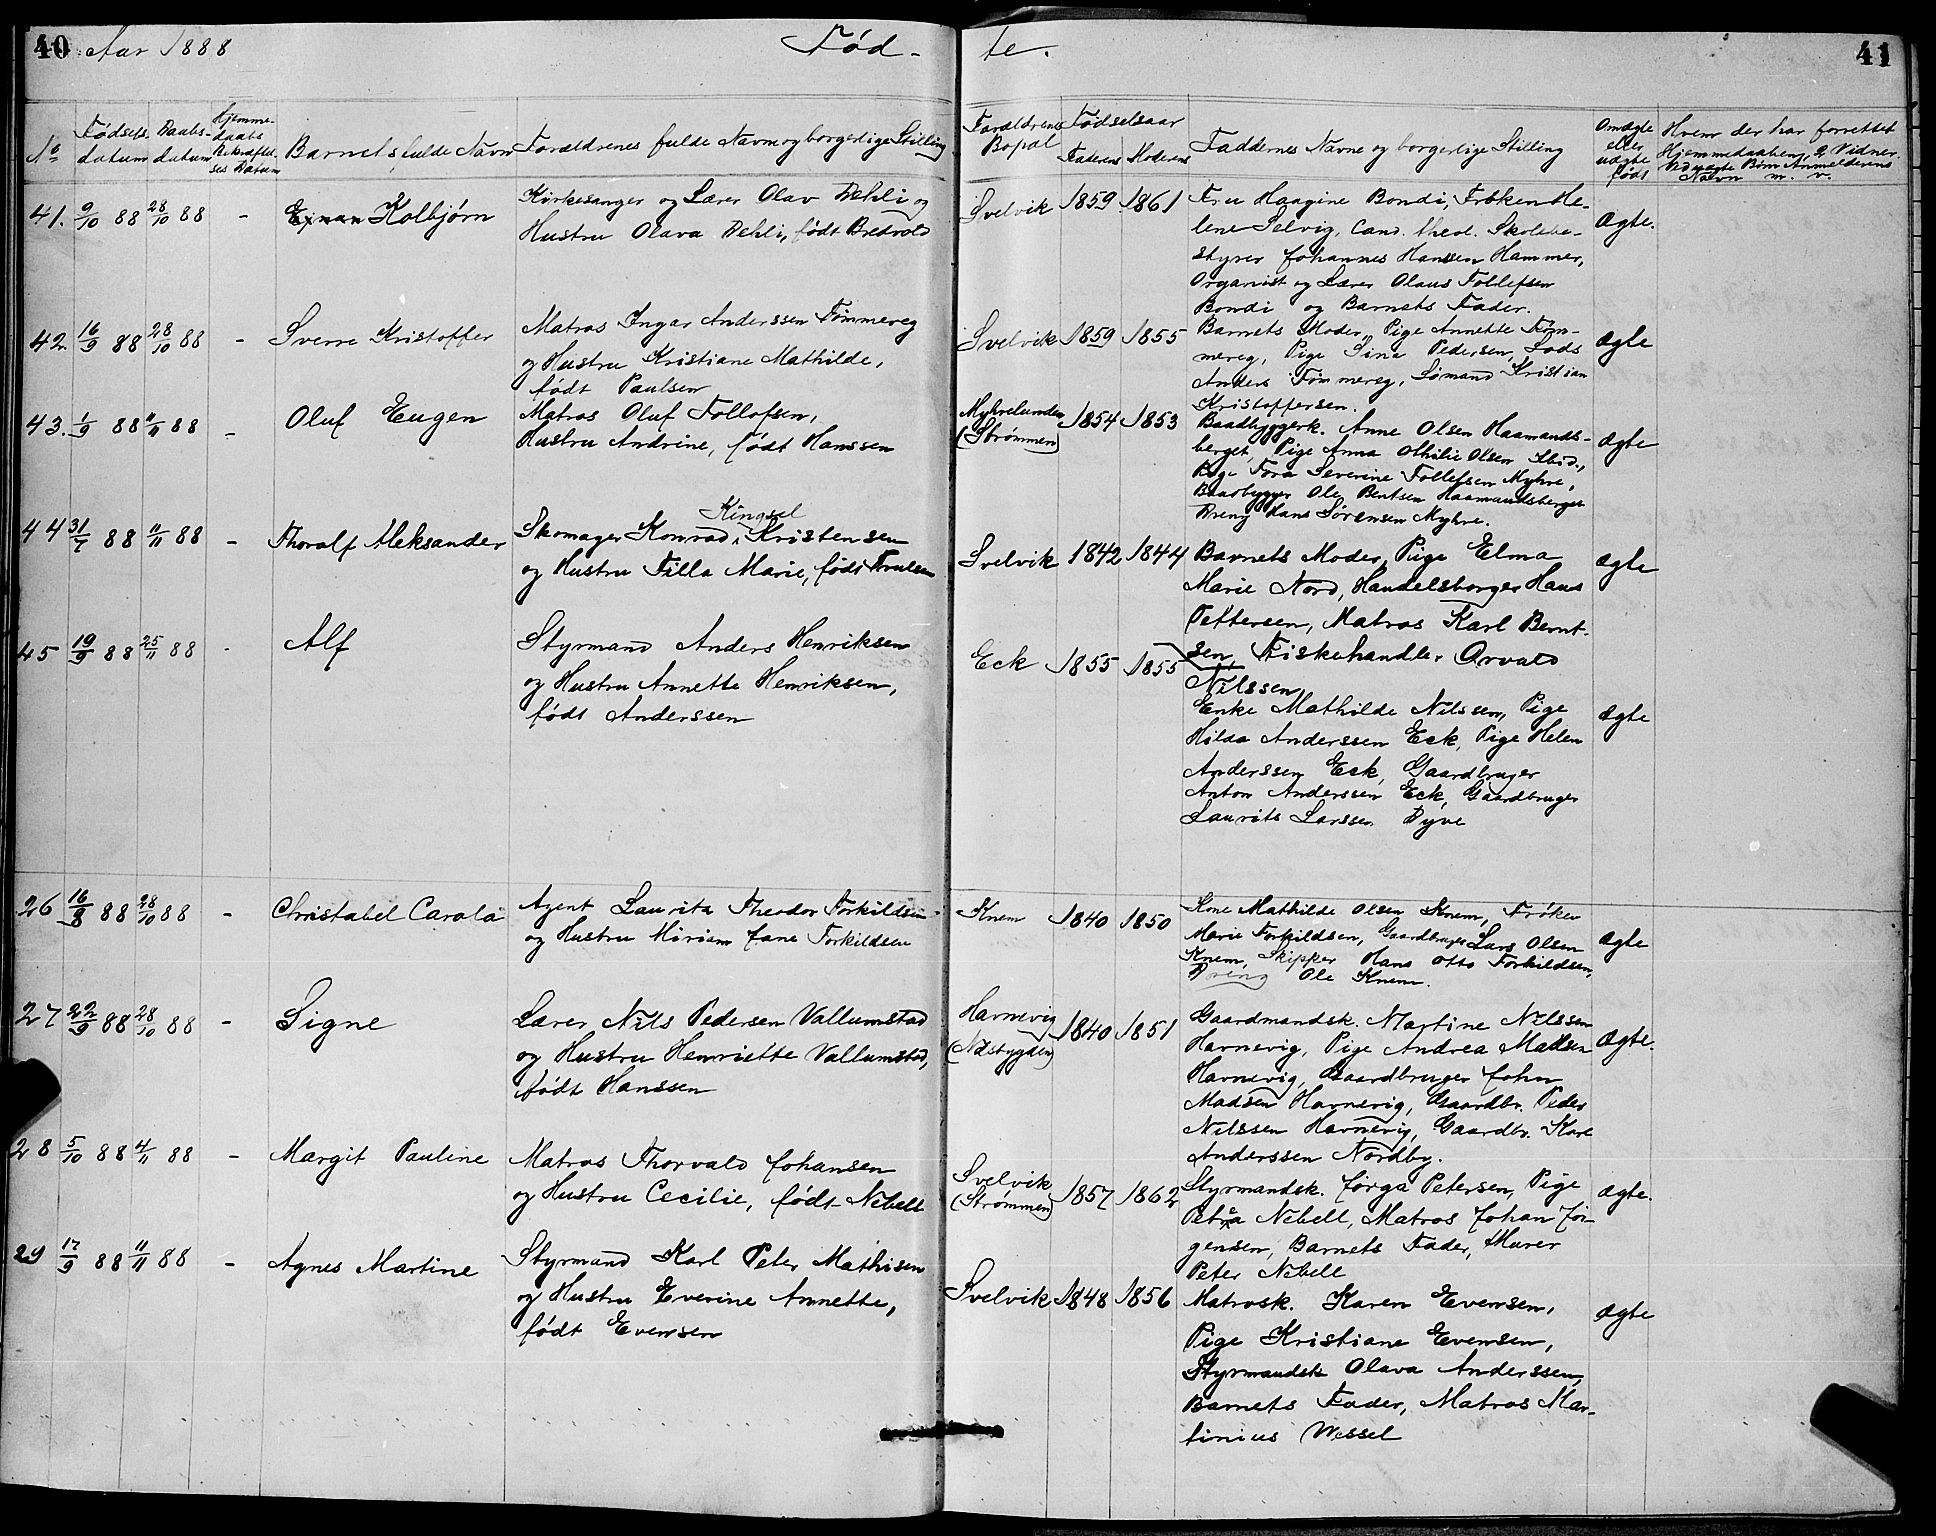 40 Aar 1888 Fød-
No
Fødsels-
datum
Daabs-
datum
Hjemme-
daabs
Bekræftel-
ses Datum
Barnets fulde Navn
Forældrenes fulde Navn og borgerlige Stilling
41. 9/10 88 28/10 88 - Kolbjørn
Kirkesanger og Lærer Olav Dehli og
Hustru Olava Dehli, født Bredvold
42. 16/9 88 28/10 88 - Sverre Kristoffer
Matros Ingar Anderssen Tømmereg
og Hustru Kristiane Mathilde,
født Paulsen
43. 1/9 88 11/11 88 - Oluf Eugen
Matros Oluf Tollofsen,
Hustru Andrine, født Hanssen
44 31/7 88 11/11 88 - Thoralf Aleksander
Kingsel
Skomager Konrad Kristensen
og Hustru Tilla Marie, født Trulsen
45 19/9 88 25/11 88 - Alf
Styrmand Anders Henriksen
og Hustru Annette Henriksen,
født Anderssen
26 16/8 88 28/10 88 - Christabel Carola
Agent Laurits Theodor Torkildsen
og Hustru Miriam Jane Torkildsen
27 22/9 88 28/10 88 - Signe
Lærer Nils Pedersen Vallumstad
og Hustru Henriette Vallumstad,
født Hanssen
28 5/10 88 4/11 88 - Margit Pauline
Matros Thorvald Johansen
og Hustru Cecilie, født Nebell
29 17/9 88 11/11 88 - Agnes Martine
Styrmand Karl Peter Mathisen
og Hustru Everine Annette,
født Evensen
te. 41
Forældrenes
Bopæl
Fødselsaar
Faderens Moderens
Faddernes Navne og borgerlige Stilling
Om ægte
eller
uægte
født
Hvem der har forrettet
Hjemmedaaben, 2 Vidner.
Ved uægte Børn Anmelderens
Navn m. v.
Svelvik 1859 1861
Fru Haagine Bondi, Frøken He-
lene Selvig, Cand. theol. Skolebe-
styrer Johannes Hansen Hammer,
Organist og Lærer Olaus Tollefsen
Bondi og Barnets Fader.
Ægte.
Svelvik 1859 1855
Barnets Moder, Pige Annette Tøm-
mereg, Pige Sina Pedersen, Lods
Anders Tømmereg, Sømand Kristian
Kristoffersen.
Ægte
Myhrelunden
(Strømmen)
1854 1853
Baadbyggerk. Anne Olsen Haamands-
berget, Pige Anna Othilie Olsen Ibid.,
Pige Tora Severine Tollefsen Myhre,
Baadbygger Ole Bentsen Haamandsberget
Dreng Hans Sørensen Myhre.
Ægte
Svelvik 1842 1844
Barnets Moder, Pige Elma
Marie Nord, Handelsborger Hans
Pettersen, Matros Karl Bernt-
sen, Fiskehandler Orvald
Nilssen
Ægte
Eck 1855 1855
Enke Mathilde Nilssen, Pige
Hilda Anderssen Eck, Pige Helen
Anderssen Eck, Gaardbruger
Anton Anderssen Eck, Gaardbruger
Laurits Larssen Dyve
Ægte
Knem 1840 1850
Kone Mathilde Olsen Knem, Frøken
Marie Torkildsen, Gaardbruger Lars Olsen
Knem, Skipper Hans Otto Torkildsen,
Dreng Ole Knem.
Ægte
Havnevig
(Næsbygden)
1840 1851
Gaardmandsk. Martine Nilssen
Havnevig, Pige Andrea Madsen
Havnevig, Gaardbruger John
Madsen Havnevig, Gaardbr. Peder
Nilssen Havnevig, Gaardbr. Karl
Anderssen Nordby.
Ægte.
Svelvik
(Strømmen)
1857 1862
Styrmandsk. Jørga Petersen, Pige
Petra Nebell, Matros Johan Jør-
gensen, Barnets Fader, Murer
Peter Nebell
Ægte.
Svelvik 1848 1856
Matrosk. Karen Evensen,
Pige Kristiane Evensen,
Styrmandsk Olava Anderssen,
Barnets Fader, Matros Mar-
tinius Wessel
Ægte